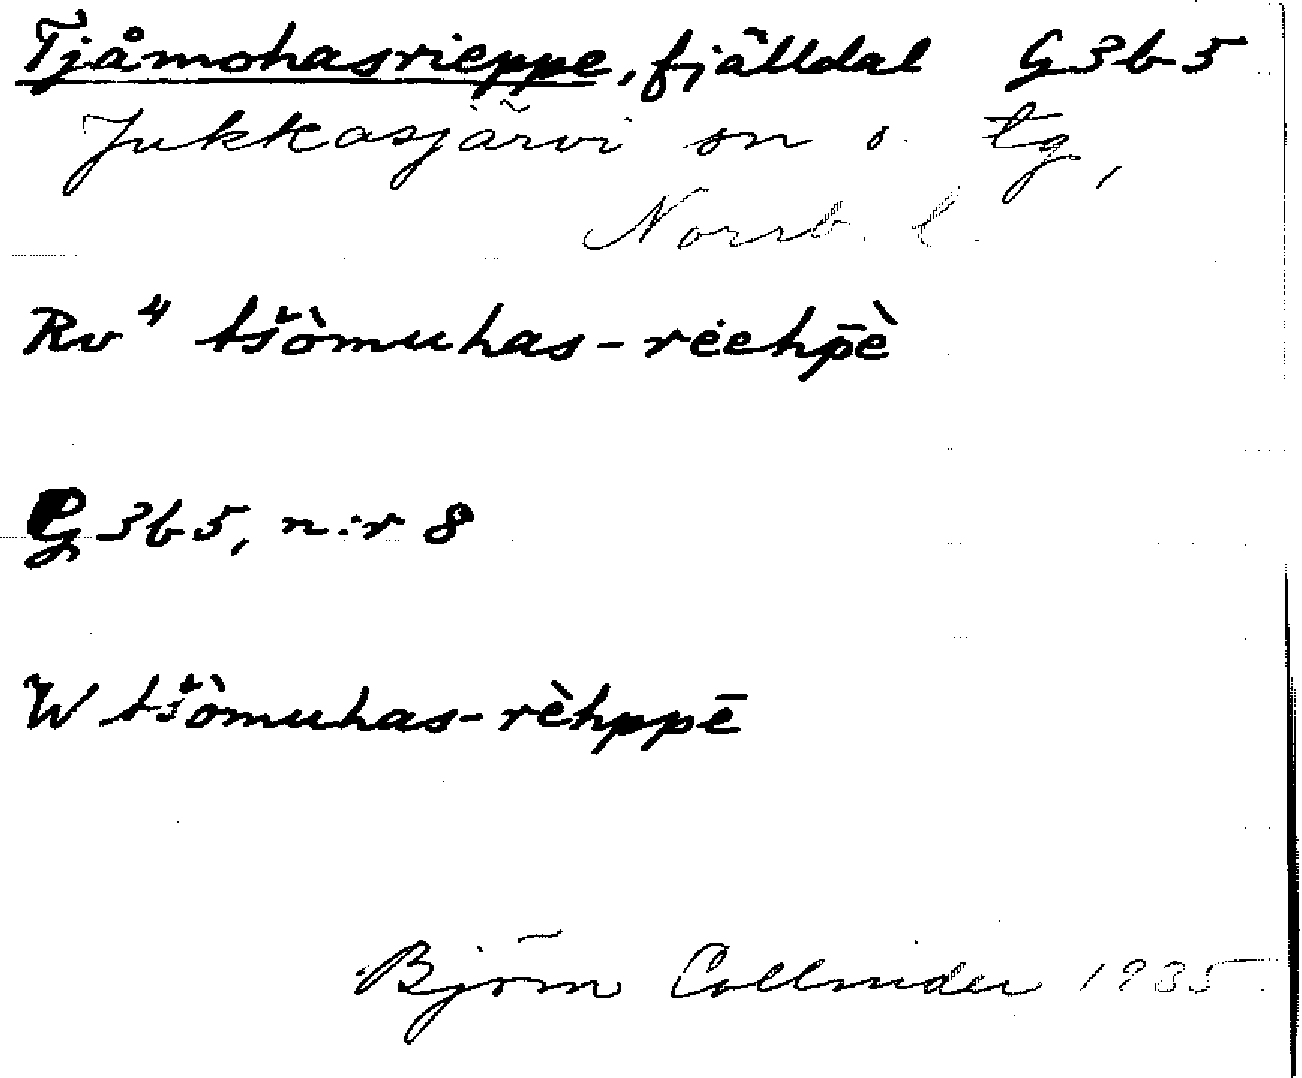 Tjåmohasrieppe, fjälldal G3b5
Jukkasjärvi sn o. tg,
Norrb. l.
Rv⁴ tš̌òmuhas-rėehp̄è
G3b5, n:r 8
W tš̌òmuhas-rèhppē
Björn Collinder 1935.